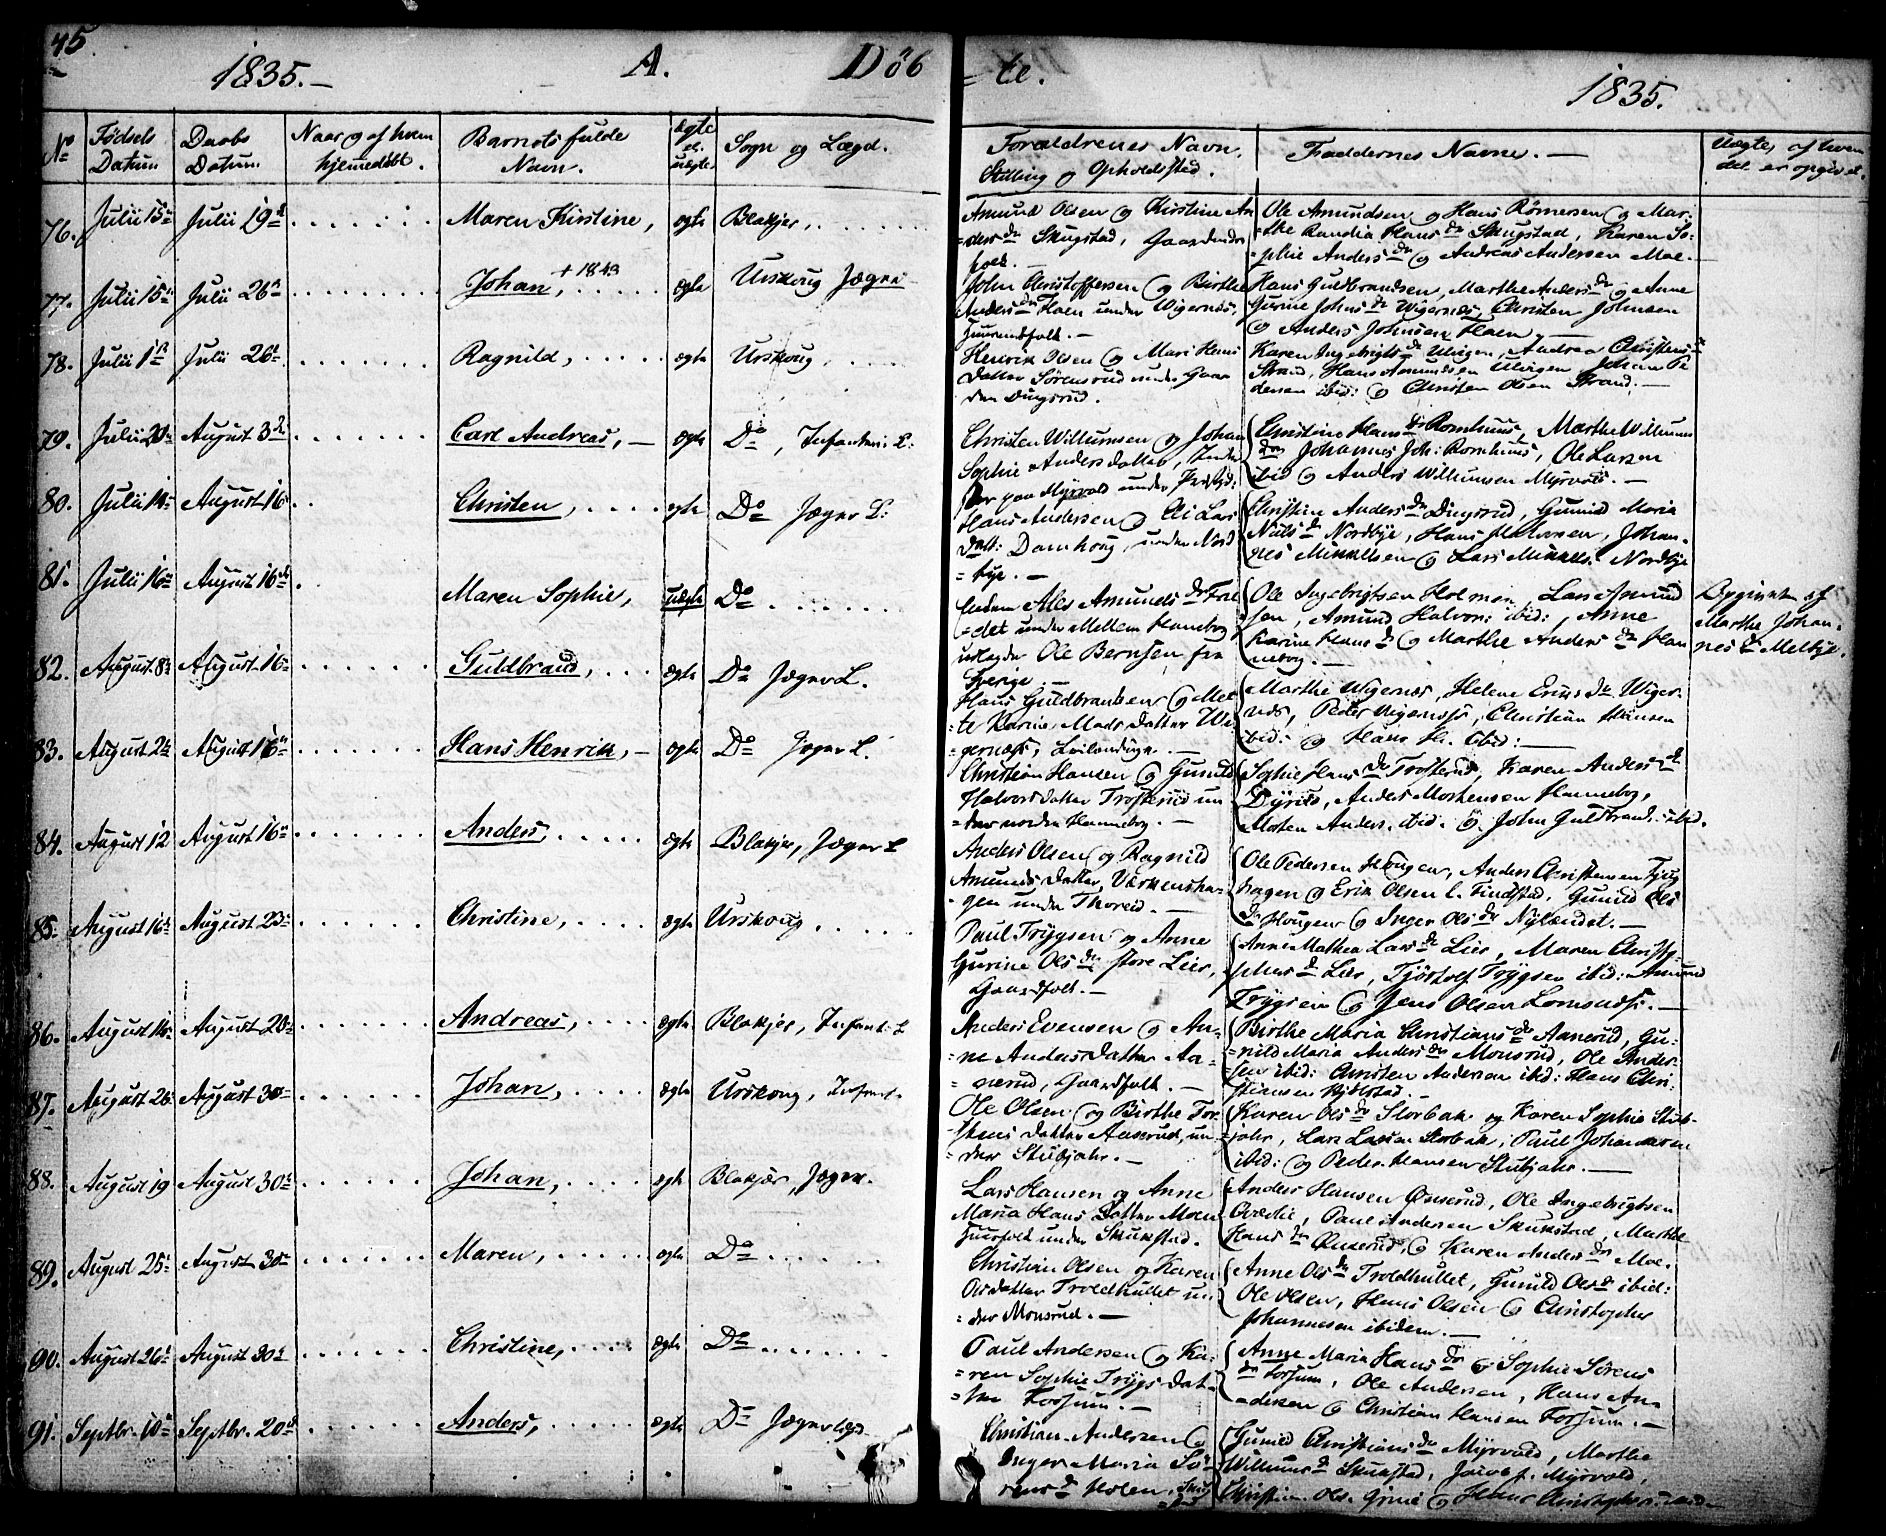 45
1835.— A. Døb
= te. 1835.
No Fødsels Datum Daabs Datum Naar og af hvem hjemedøbt. Barnets fulde Navn. ægte el. uægte Sogn og Lægd.
Forældrenes Navn, Stilling og Opholdsted. Faddernes Navne.— Uægte, af hvem det er opgivet.
76. Julii 15de Julii 19de Maren Kirstine, ægte Blakjer,
Amund Olsen og Kirstine An
=ders dr Skugstad, Gaardmands
folk.—
Ole Amundsen og Hans Rømersen og Mar-
=the Randia Hans dr Skugstad, Karen So-
=phie Anders dr og Andreas Andersen Moe.
77. Julii 15de Julii 26de Johan, + 1843 ægte Urskoug Jæger
John Christoffersen og Birthe
Anders dr Haen under Wigernes,
Huusmdfolk.—
Hans Guldbrandsen, Marthe Anders dr og Anne
Gurine Johns dr Wigernæs, Christen Johnsen
og Anders Johnsen Haen.—
78. Julii 1ste Julii 26de Ragnild, ægte Urskoug,
Henrik Olsen og Mari Hans
Datter Sørensrud under Gaar
den Dingsrud.
Karen Ingebrigts dr Ulvigen, Andrea Christens dr
Strand, Hans Amundsen Ulvigen, Johan Pe
dersen ibid: og Christen Olsen Strand.—
79. Julii 20de August 3die Carl Andreas, — ægte Do, Infanteri L.
Christen Willumsen og Johan
Sophie Anders datter,
paa Myrvold under
Christine Hans dr Romhuus, Marthe Willums
dr, Johannes Joh: Romhuus, Ole Larsen
ibid og Anders Willumsen Myrvold.—
80. Julii 14de August 16 Christen, ægte Do Jæger L:
Hans Andersen og Eli Lars
Datt: Damhoug, under Nord
=bye.—
Christine Anders dr Dingsrud, Gunild Maria
Niels dr Nordbye, Hans Halvorsen, Johan-
nes Mikkelsen og Lars Mikkels. Nordbye
81. Julii 16de August 16de Maren Sophie, uægte Do
Alis Amunds dr
=det under Mellem Hannebog
udlagde Ole Bernsen fra
Sverige.—
Ole Ingebrigtsen Holmen, Lars Amund
sen, Amund Halvors: ibid:, Anne
Karine Hans dr og Marthe Anders dr Han
nebog.—
Opgivet af
Marthe Johan-
nes dr Melbye.
82. August 8de August 16de Guldbrand, ægte Do Jæger L.
Hans Guldbrandsen og Met
te Karine Mads datter Wi
gernæss,
Marthe Wigernæs, Helene Erics dr Wiger
næs, Peder Wigernæss, Christian Hansen
ibid: og Hans H. ibid:—
83. August 2de August 16de Hans Henrik, — ægte Do Jæger L.
Christian Hansen og Gunild
Halvors datter Trosterud un
=der nordre Hannebog.—
Sophie Hans dr Trosterud, Karen Anders dr
Dyrud, Anders Mortensen Hannebog,
Morten Anders. ibid. og John Guldbrands. ibid.
84. August 12 August 16de Anders, ægte Blakjer, Jæger L
Anders Olsen og Ragnild
Amunds datter, Værkensha-
gen under Thoreid.—
Ole Pedersen Hougen, Anders Christensen
hagen og Erik Olsen l. Findstad, Gunild Ols
dr Hougen og Inger Ols dr Nylændet.—
85. August 16de August 23de Christine, ægte Urskoug
Paul Trygsen og Anne
Gurine Ols dr store Lier,
Gaardfolk.—
Anne Mathea Lars dr Lier, Maren Christo-
phers dr Lier, Tjøstolf Trygsen ibid: Amund
Trygsen og Jens Olsen Lomsnæss.—
86. August 14de August 20de Andreas, ægte Blakjer, Infant: L
Anders Evensen og An-
ne Anders datter Aa-
=nerud, Gaardfolk.—
Birthe Maria Christians dr Aanerud, Gu-
=nild Maria Anders dr Monsrud, Ole Ander-
sen ibid: Christen Andersen ibid: Hans Chri-
stiansen
87. August 26 August 30de Johan, ægte Urskoug, Infant.
Ole Olsen og Birthe Tor-
stens datter Aaserud, un-
der Stubjahr.—
Karen Ols dr Storbak og Karen Sophie Stub-
=jahr, Lars Larsen Storbak, Paul Johannesen
ibid: og Peder Hansen Stubjahr.—
88. August 19 August 30de Johan, ægte Blakjær, Jæger.
Lars Hansen og Anne
Maria Hans Datter Moen
Huusfolk under Skukstad.
Anders Hansen Ønserud, Ole Ingebrigtsen
Paul Andersen Skukstad, Marthe
Hans dr Ønserud, og Karen Anders dr Moe.
89. August 25de August 30de Maren, ægte Do
Christian Olsen og Karen
Ols datter Troldhullet un-
=der Monsrud.—
Anne Ols dr Troldhullet, Gunild Ols dr ibid:
Ole Olsen, Hans Olsen og Christopher
Johannesen ibidem.—
90. August 26de August 30de Christine, ægte Do
Paul Andersen og Ka-
=ren Sophie Trygs dat-
=ter Forsum.—
Anne Maria Hans dr og Sophie Sørens
dr Forsum, Ole Andersen, Hans An-
=dersen og Christian Hansen Forsum.—
91. Septbr. 10de Septbr. 20de Anders, ægte Do Jægerlægd
Christian Andersen og
Inger Maria Sø-
rens dr Holen,
Gunild Christians dr Myrvold, Marthe
Willums dr Skukstad, Jacob J. Myrvold,
Christian Ols. og Hans